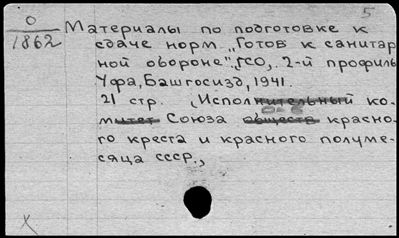 5
О
1862
Материалы по подготовке к
сдаче норм „Готов к санитар
ной обороне", ГСО, 2-й профиль
Уфа, Башгосизд, 1941.
21 стр. (Исполнительный ко-
митет Союза обществ красно-
го креста и красного полуме-
сяца СССР.,
X